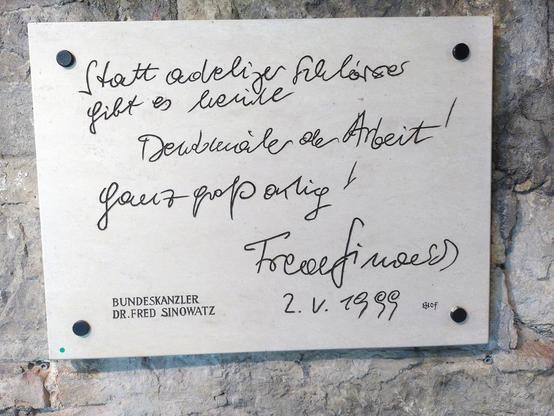 Statt adeliger Schlösser
gibt es heute
Denkmäler der Arbeit!
Ganz großartig!
Fred Sinowatz
2. V. 1999
BUNDESKANZLER
DR. FRED SINOWATZ